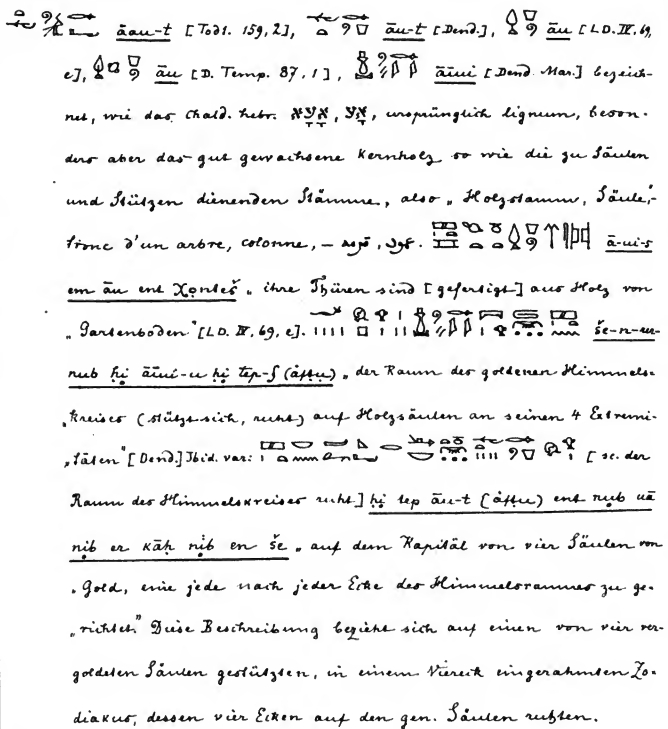 āau-t [Todt. 159, 2], āu-t [Dend.], āu [LD. IV. 69,
e], āu [D. Temp. 87, 1], āiui [Dend. Mar.] bezeich-
net, wie das chald. hebr. אָעָא, אָע, ursprünglich lignum, beson-
ders aber das gut gewachsene Kernholz so wie die zu Säulen
und Stützen dienenden Stämme, also „Holzstamm, Säule",
tronc d'un arbre, colonne, – ā-ui-s
em āu ent Xonteš „ihre Thüren sind [gefertigt] aus Holz von
„Gartenboden" [LD. IV, 69, e]. še-n-ur-
nub ḥi āiui-u ḥi tep-f (åftu) „der Raum des goldenen Himmels-
„kreises (stützt sich, ruht) auf Holzsäulen an seinen 4 Extremi-
„täten" [Dend.] Ibid. var: [sc. der
Raum des Himmelskreises ruht] ḥi tep āu-t (åftu) ent nub uā
nib er kāḥ nib en še „auf dem Kapitäl von vier Säulen von
„Gold, eine jede nach jeder Ecke des Himmelsraumes zu ge-
„richtet." Diese Beschreibung bezieht sich auf einen von vier ver-
goldeten Säulen gestützten, in einem Viereck eingerahmten Zo-
diakus, dessen vier Ecken auf den gen. Säulen ruhten.